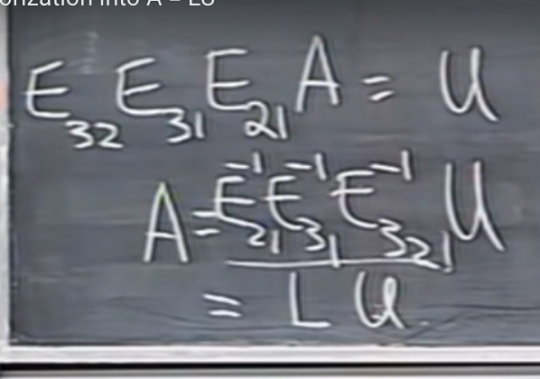 orization into A = LU
E₃₂ E₃₁ E₂₁ A = U
A = E₂₁⁻¹ E₃₁⁻¹ E₃₂⁻¹ U
= L U